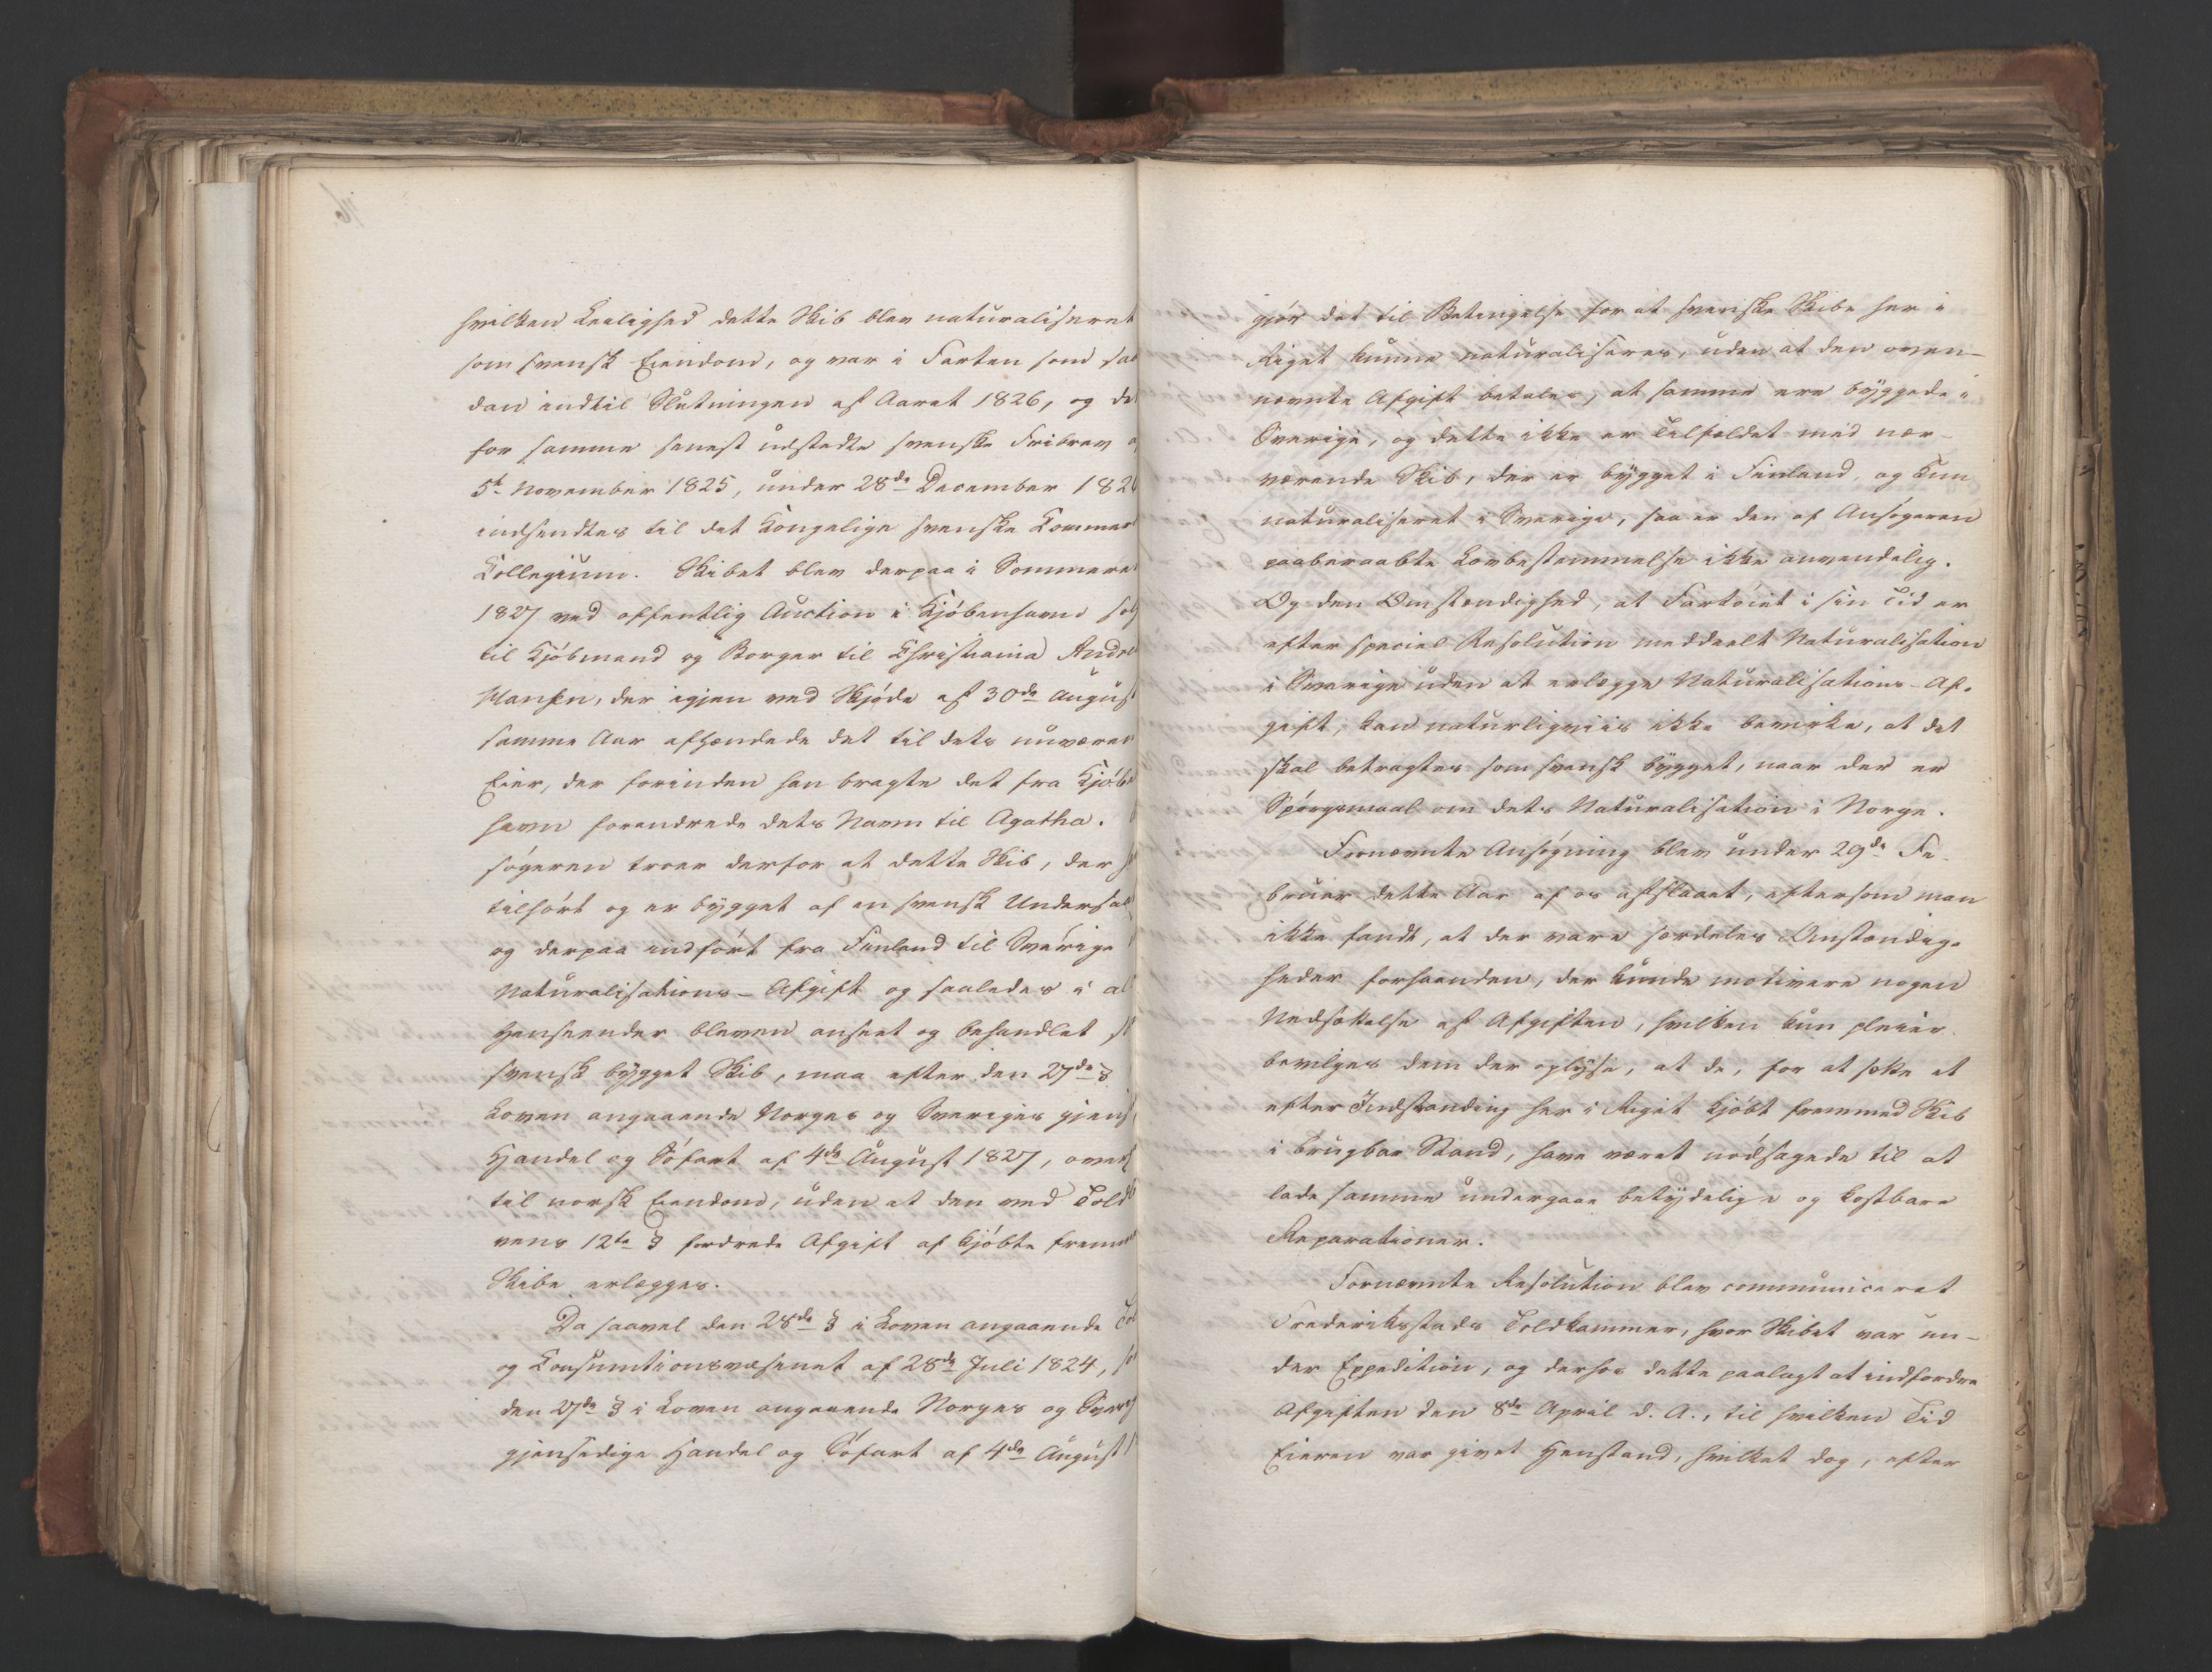 hvilken Leilighed dette Skib blev naturaliseret
som svensk Eiendom, og var i Farten som saa
dan indtil Slutningen af Aaret 1826, og det
for samme senest udstedte svenske Fribrev a
5te November 1825, under 28de December 182
indsendtes til det Kongelige svenske Commer
Collegium. Skibet blev derpaa i Sommere
1827 ved offentlig Auction i Kjöbenhavn sol
til Kjöbmand og Borger til Christiania Andre
Hansen, der igjen ved Skjöde af 30de August
samme Aar afhændede det til dets nuværen
Eier, der forinden han bragte det fra Kjöbe
havn forandrede dets Navn til Agatha.
søgeren troer derfor at dette Skib, der
tilhört og er bÿgget af en svensk Undersaat
og derpaa indfört fra Finland til Sverige
Naturalisations-Afgift og saaledes i al
Henseender bleven anseet og behandlet s
svensk bÿgget Skib, maa efter den 27de §
Loven angaaende Norges og Sveriges gjens
Handel og Söfart af 4de August 1827, over
til norsk Eiendom, uden at den ved Toldl
vens 12te § fordrede Afgift af kjöbte frem
Skibe erlægges.
Da saavel den 28de § i Loven angaaende Tol
og Consumtionsvæsenet af 28de Juli 1824, so
den 27de § i Loven angaaende Norges og Sverig
gjensidige Handel og Söfart af 4de August 1
gjör det til Betingelse for at svenske Skibe her i
Riget kunne naturaliseres, uden at den oven-
nævnte Afgift betales, at samme ere bÿggede i
Sverige, og dette ikke er Tilfældet med nær-
værende Skib, der er bÿgget i Finland, og kun
naturaliseret i Sverige, saa er den af Ansögeren
paaberaabte Lovbestemmelse ikke anvendelig.
Og den Omstændighed, at Fartöiet i sin Tid er
efter speciel Resolution meddeelt Naturalisation
i Sverige uden at erlægge Naturalisations-Af-
gift, kan naturligviis ikke bevirke, at det
skal betragtes som svensk bÿgget, naar der er
Spörgsmaal om dets Naturalisation i Norge.
Fornævnte Ansögning blev under 29de Fe-
bruar dette Aar af os afslaaet, eftersom man
ikke fandt, at der vare særdeles Omstændig-
heder forhaanden, der kunde motivere nogen
Nedsættelse af Afgiften, hvilken kun pleier
bevilges dem der oplÿse, at de, for at sætte et
efter Indstranding her i Riget kjöbt fremmed Skib
i brugbar Stand, have været nödsagede til at
lade samme undergaae betÿdelige og kostbare
Reparationer.
Fornævnte Resolution blev communiceret
Frederiksstads Toldkammer, hvor Skibet var un-
der Expedition, og derhos dette paalagt at indfordre
Afgiften den 8de April d. A., til hvilken Tid
Eieren var givet Henstand, hvilket dog, efter